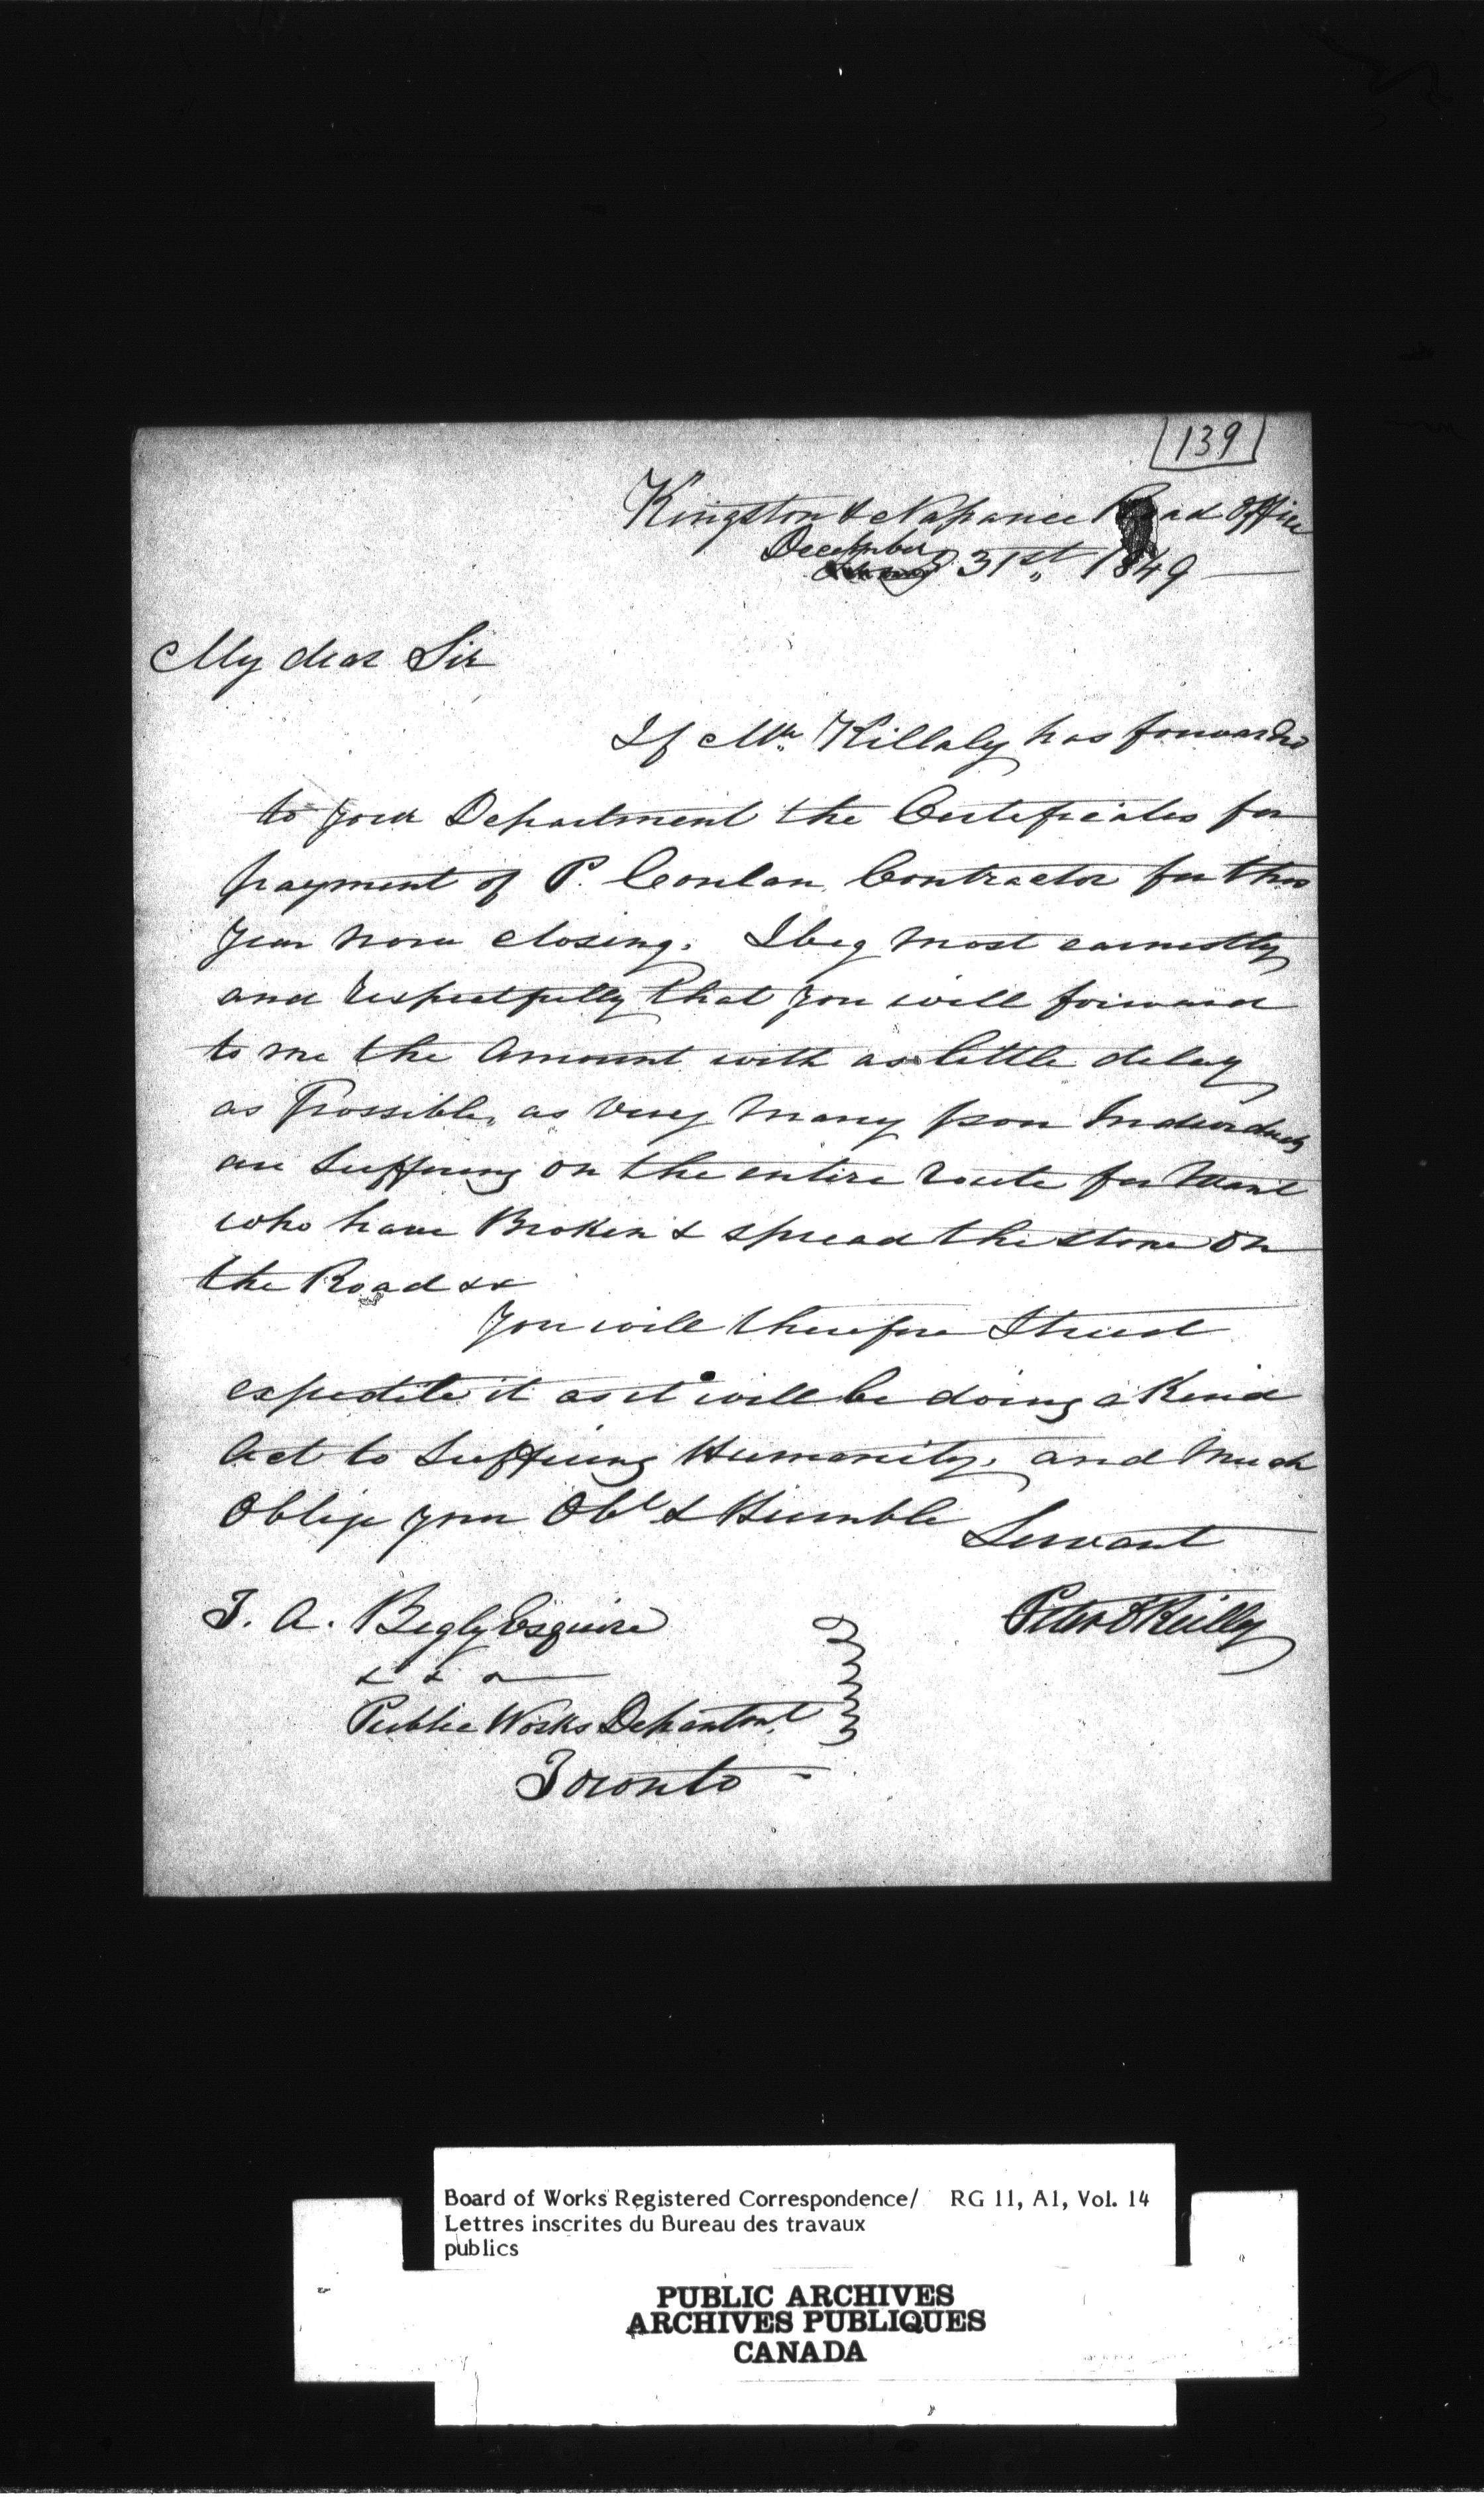 139
Kingston & Napanee Road Office
December 31st, 1849
My dear Sir
If Mr Killaly has forwarded
to your Department the Certificates for
payment of P. Conlan, Contractor for this
year now closing. I beg most earnestly
and respectfully that you will forward
to me the Amount with as little delay
as Possible, as very many poor Individuals
are Suffering on the entire route for Want
who have Broken & spread the stone on
the Road &c
You will therefore I trust
expedite it as it will be doing a Kind
Act to Suffering Humanity. and Much
Oblige your Obt & Humble Servant
Peter O'Reilly
T. A. Begly Esquire
& & &
Public Works Department
Toronto
Board of Works Registered Correspondence/ RG 11, A1, Vol. 14
Lettres inscrites du Bureau des travaux
publics
PUBLIC ARCHIVES
ARCHIVES PUBLIQUES
CANADA